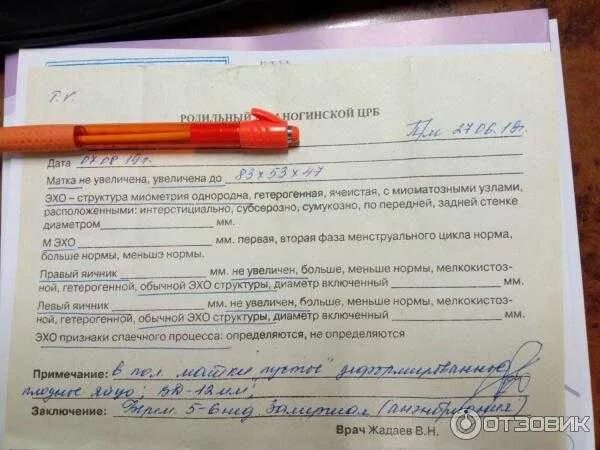 Т.V.
РОДИЛЬНЫЙ НОГИНСКОЙ ЦРБ
П/м 27.06.14г.
Дата 07.08 14г.
Матка не увеличена, увеличена до 83×53×47
ЭХО – структура миометрия однородна, гетерогенная, ячеистая, с миоматозными узлами,
расположенными: интерстициально, субсерозно, сумукозно, по передней, задней стенке
диаметром мм.
М ЭХО мм. первая, вторая фаза менструального цикла норма,
больше нормы, меньшэ нормы.
Правый яичник мм. не увеличен, больше, меньше нормы, мелкокистоз-
ной, гетерогенной, обычной ЭХО структуры, диаметр включенный мм.
Левый яичник мм. не увеличен, больше, меньше нормы, мелкокистоз-
ной, гетерогенной, обычной ЭХО структуры, диаметр включенный мм.
ЭХО признаки спаечного процесса: определяются, не определяются
Примечание: в пол. матки пустое деформированное
плодное яйцо; ВД-12мм,
Заключение: Берем. 5-6нед Замершая (анэмбриония)
Врач Жадаев В.Н.
ОТЗОВИК